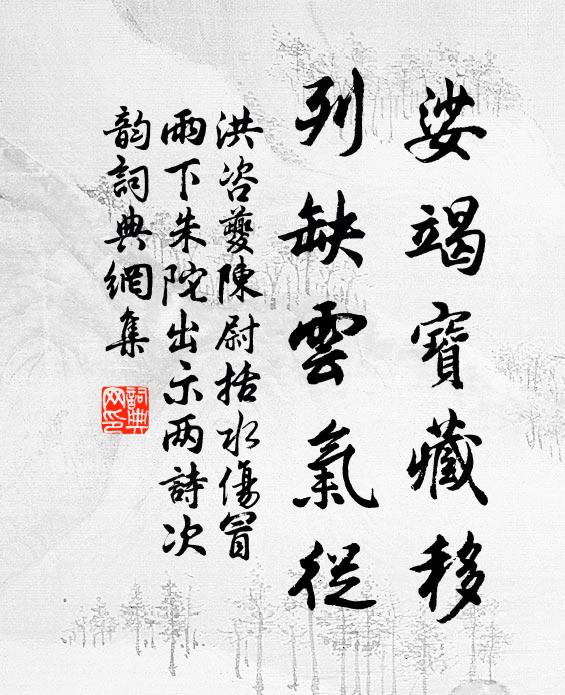 娑竭寶藏移
列缺雲氣從
洪咨夔陳尉括水傷冒
雨下朱陀出示两詩次
韵詞典網集
詞典
网印